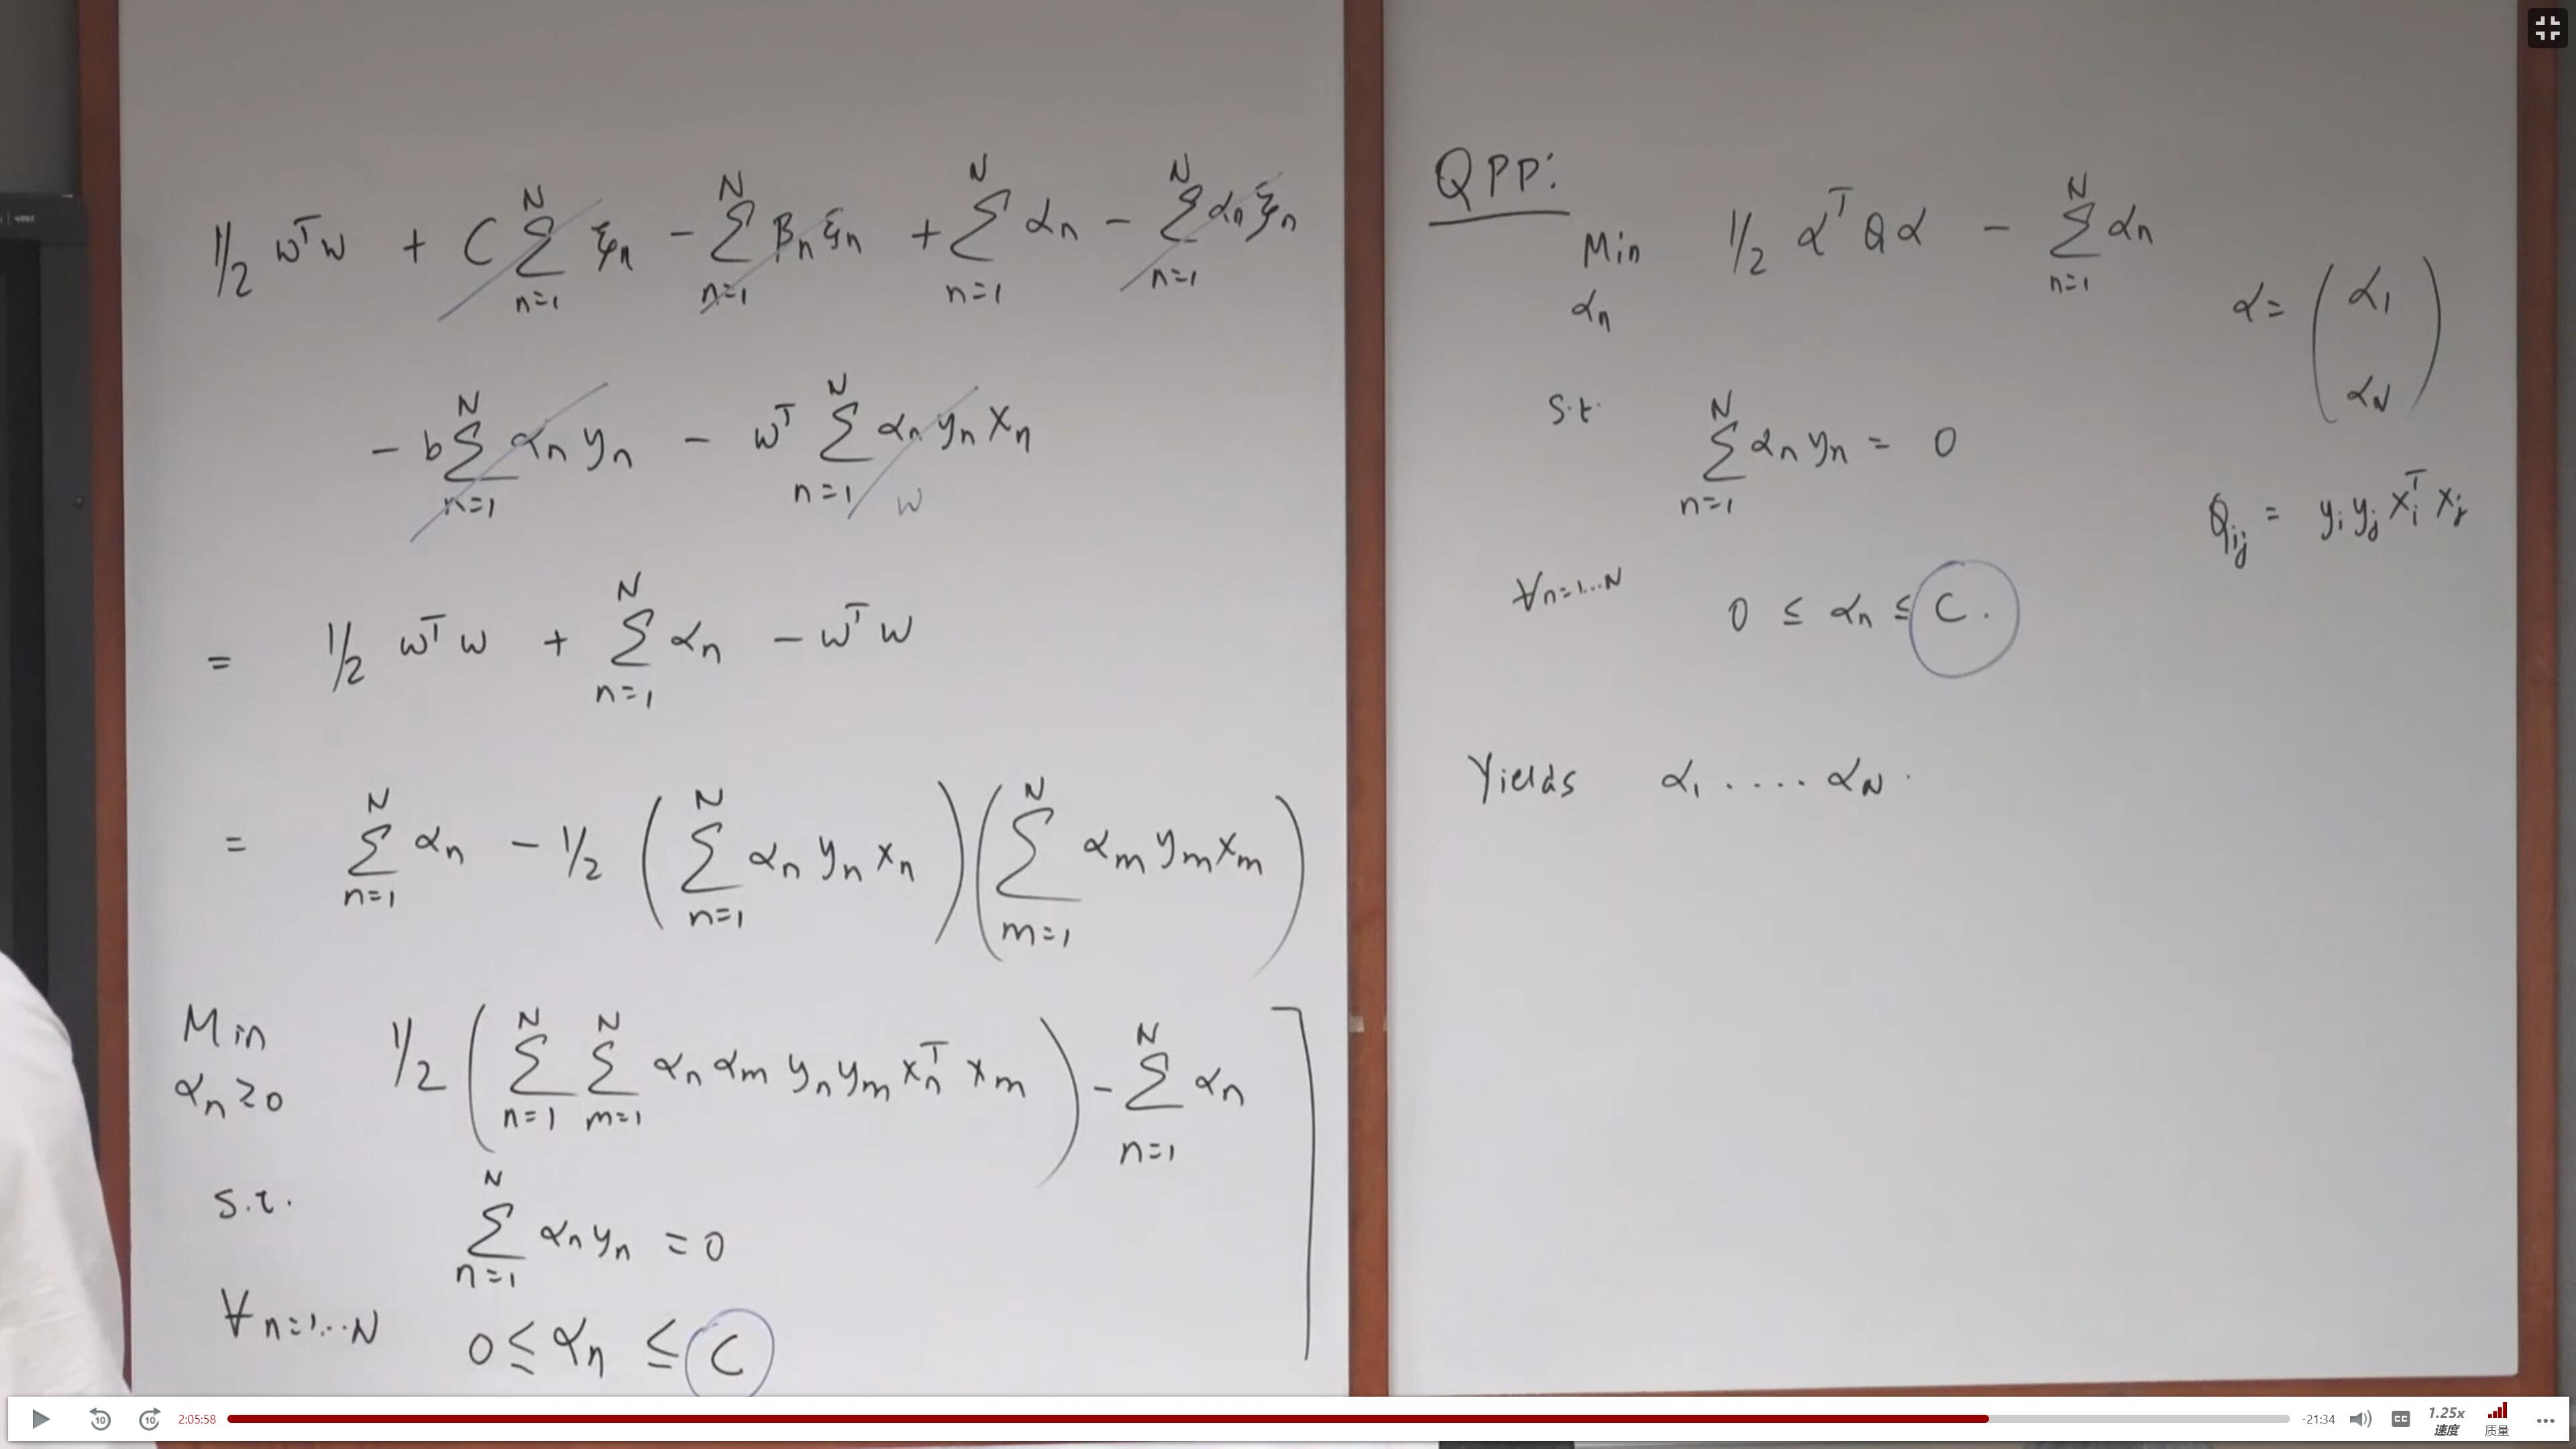 1/2 wᵀw + C Σ_{n=1}^{N} ξn - Σ_{n=1}^{N} βn ξn + Σ_{n=1}^{N} αn - Σ_{n=1}^{N} αn ξn
- b Σ_{n=1}^{N} αn yn - wᵀ Σ_{n=1}^{N} αn yn xn
w
= 1/2 wᵀw + Σ_{n=1}^{N} αn - wᵀw
= Σ_{n=1}^{N} αn - 1/2 (Σ_{n=1}^{N} αn yn xn)(Σ_{m=1}^{N} αm ym xm)
Min αn ≥ 0 1/2 (Σ_{n=1}^{N} Σ_{m=1}^{N} αn αm yn ym xnᵀ xm) - Σ_{n=1}^{N} αn
s.t. Σ_{n=1}^{N} αn yn = 0
∀n=1...N 0 ≤ αn ≤ C
QPP:
Min αn 1/2 αᵀQα - Σ_{n=1}^{N} αn
α = (α1 αN)
s.t. Σ_{n=1}^{N} αn yn = 0
Qij = yi yj xiᵀ xj
∀n=1...N 0 ≤ αn ≤ C.
Yields α1 .... αN.
10 10 2:05:58 -21:34 CC 1.25x 速度 质量